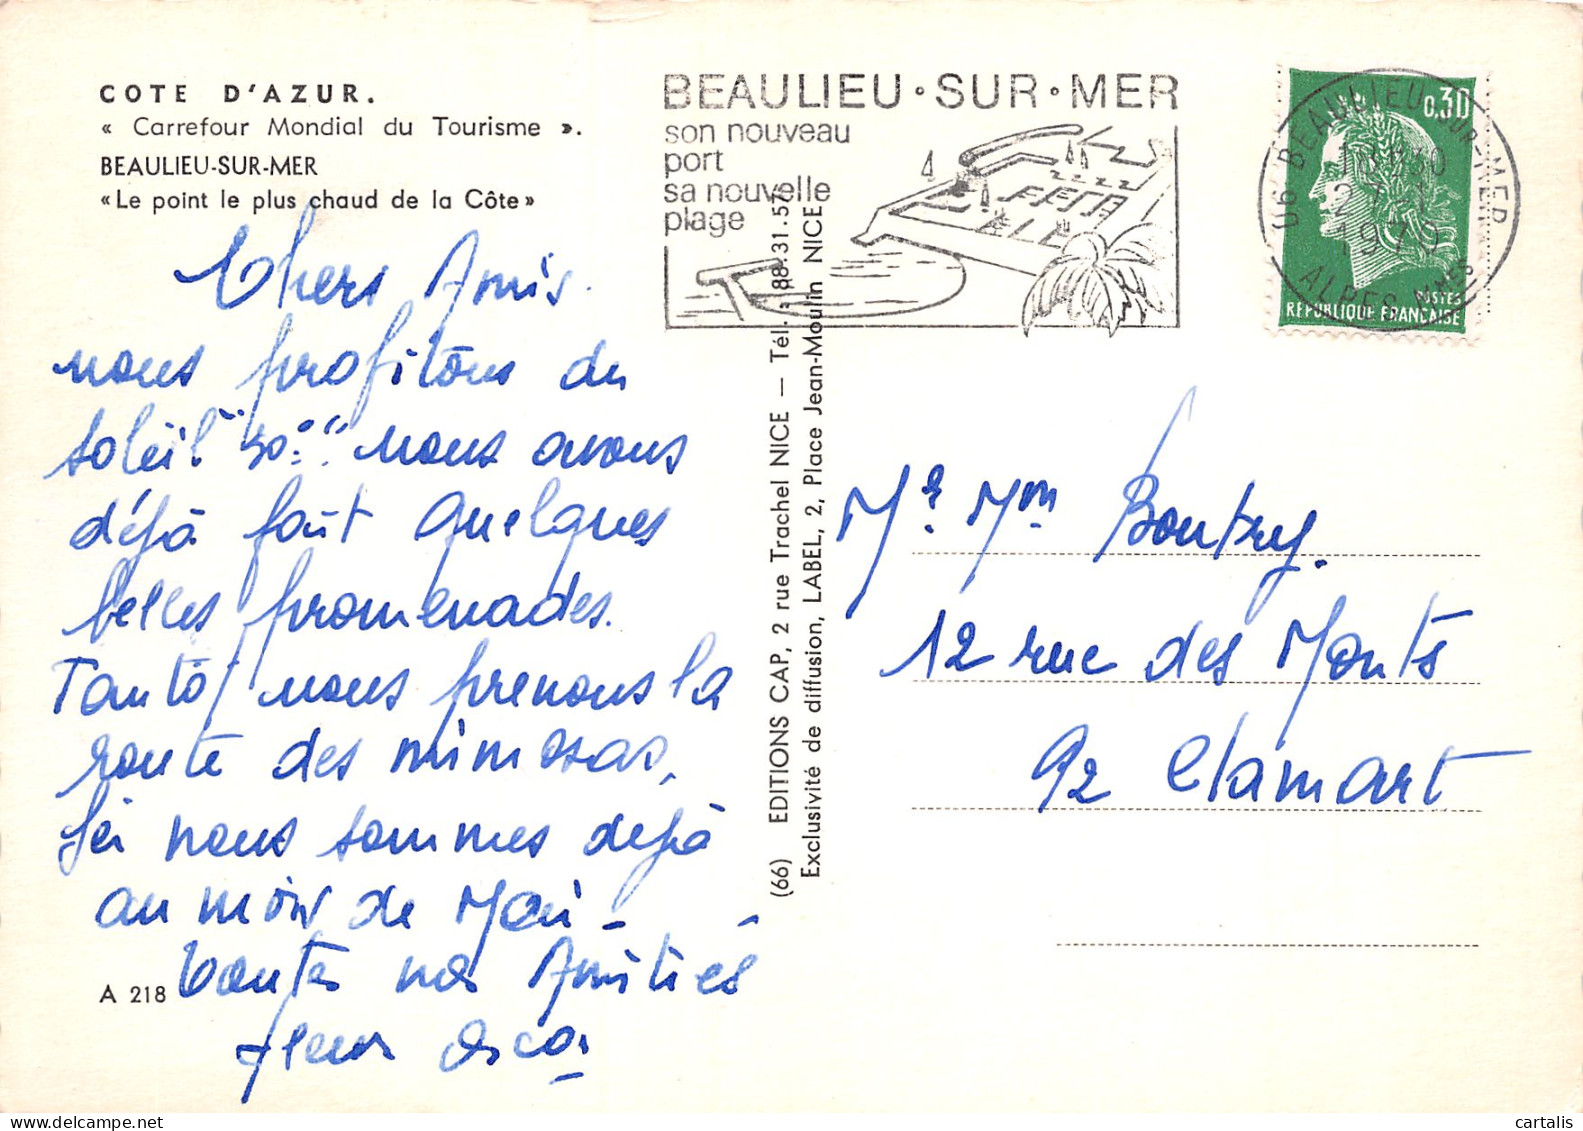 COTE D'AZUR.
« Carrefour Mondial du Tourisme ».
BEAULIEU-SUR-MER
«Le point le plus chaud de la Côte»
Chers Amis.
nous profitons du
soleil "30°" nous avons
déjà fait quelques
belles promenades.
Tantôt nous prenons la
route des mimosas,
Ici nous sommes déjà
au mois de Mai -
Toutes nos Amitiés
Fleur Oscar
A 218
(66) EDITIONS CAP, 2 rue Trachel NICE — Tél. : 88.31.57
Exclusivité de diffusion, LABEL, 2, Place Jean-Moulin NICE
BEAULIEU·SUR·MER
son nouveau
port
sa nouvelle
plage
0,30
POSTES
REPUBLIQUE FRANCAISE
06 BEAULIEU-SUR-MER
1970
ALPES-MMES
Mr Mme Boutry.
12 rue des Monts
92 Clamart
cartalis